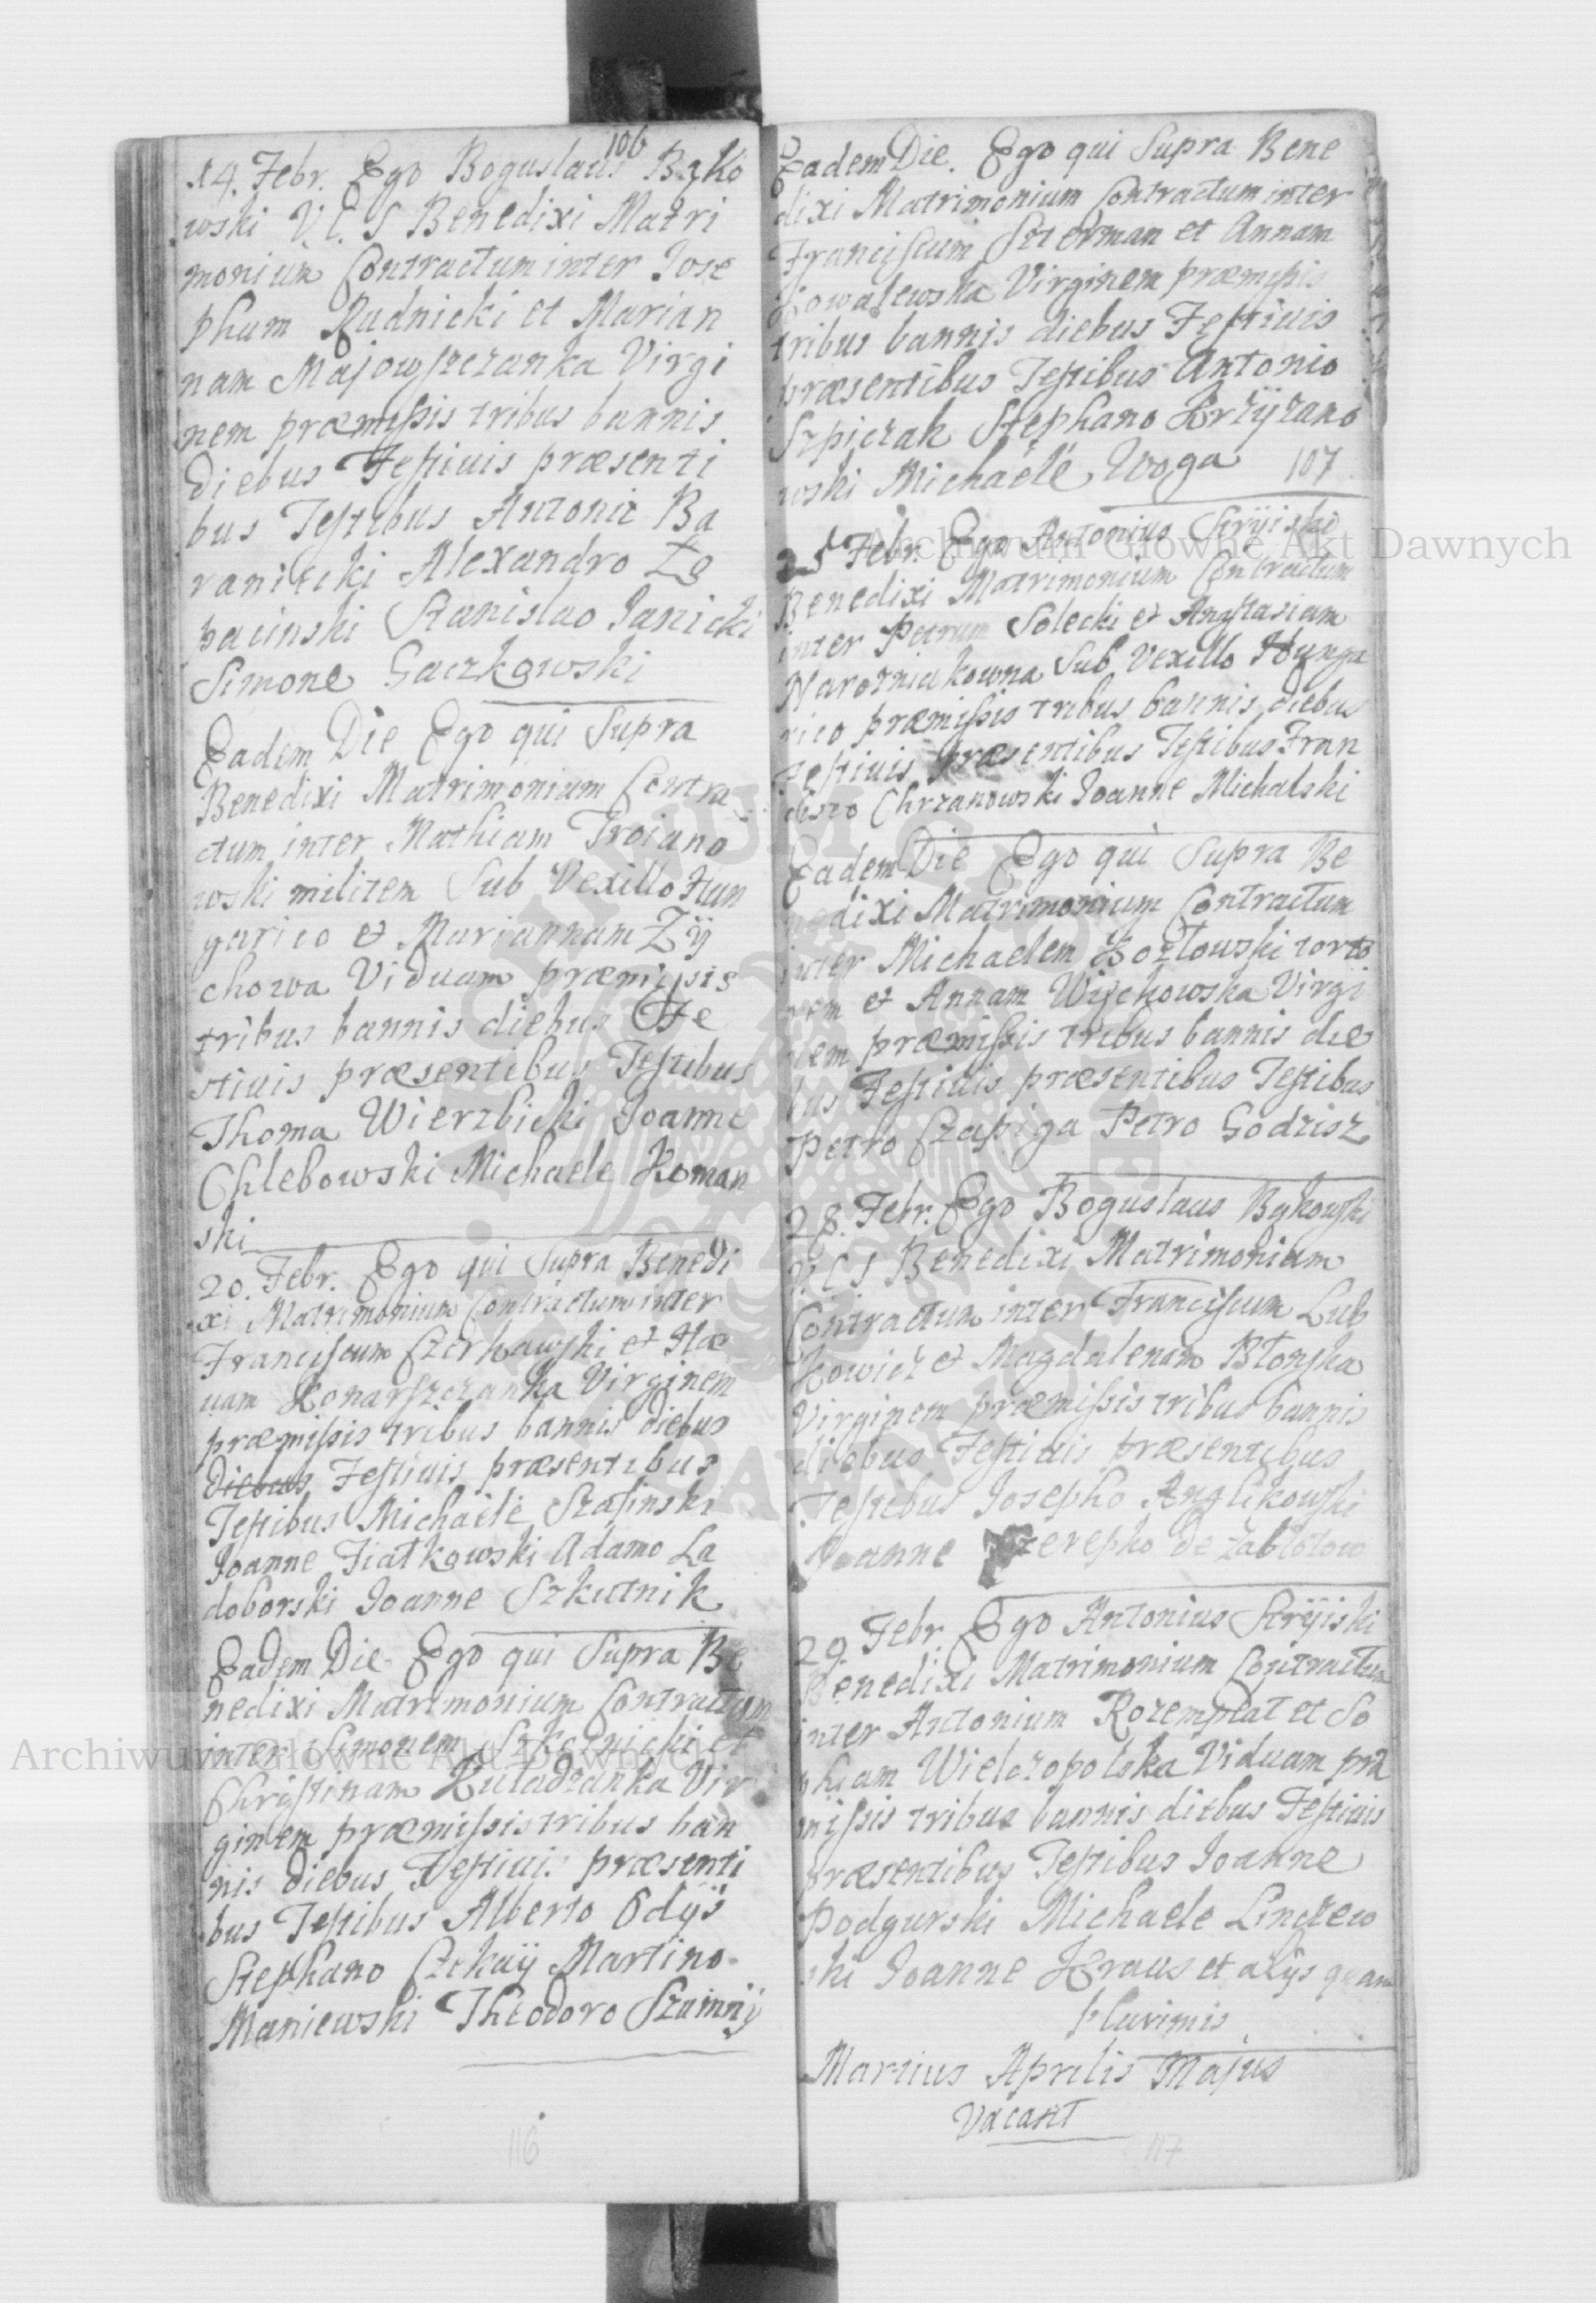 106
14. Febr. Ego Boguslaus Bąko
wski V. C. S Benedixi Matri
monium Contractum inter Jose
phum Rudnicki et Marian
nam Majowszczanka Virgi
nem præmissis tribus bannis
Diebus Festiuis præsenti
bus Testibus Antonio Ba
ranicki Alexandro Zg
Stanislao Janicki
Simone Gaczkowski
Eadem Die Ego qui Supra
Benedixi Matrimonium Contra
ctum inter Mathiam Troiano
wski militem Sub Vexillo Hun
garico et Mariannam Zÿ
chowa Viduam præmissis
tribus bannis diebus Fe
stiuis præsentibus Testibus
Thoma Wierzbicki Joanne
Chlebowski Michaele Koman
ski
20. Febr. Ego qui Supra Benedi
xi Matrimonium Contractum inter
Franciscum Czerkawski et Hæ
uam Konarszczanka Virginem
præmissis tribus bannis diebus
Diebus Festiuis præsentibus
Testibus Michaële Szasinski
Joanne Fiałkowski Adamo La
doborski Joanne Szkutnik
Eadem Die Ego qui Supra Be
nedixi Matrimonium Contractum
inter Simonem et
Christinam Kuladzanka Vir
ginem præmissis tribus ban
nis diebus Festiuis præsenti
bus Testibus Alberto Odÿs
Stephano Czekaÿ Martino
Maniewski Theodoro Szumnÿ
116
Eadem Die. Ego qui Supra Bene
dixi Matrimonium Contractum inter
Franciscum Szterman et Annam
Kowalewska Virginem præmissis
tribus bannis diebus Festiuis
præsentibus Testibus Antonio
Szpiczak Stephano Krzÿzano
wski Michaële Woga 107
25 Febr. Ego Antonius Strÿiski
Benedixi Matrimonium Contractum
inter Petrum Solecki et Anastasiam
Narozniakowna Sub Vexillo Hunga
rico præmissis tribus bannis diebus
Festiuis præsentibus Testibus Fran
cisco Chrzanowski Joanne Michalski
Eadem Die Ego qui Supra Be
nedixi Matrimonium Contractum
inter Michaelem Kozłowski torto
rem et Annam Wÿchowska Virgi
nem præmissis tribus bannis die
bus Festiuis præsentibus Testibus
Petro Czapiga Petro Godzisz
28. Febr. Ego Boguslaus Bąkowski
V. C S Benedixi Matrimonium
Contractum inter Franciscum Lub
kowicz et Magdalenam Błonska
Virginem præmissis tribus bannis
diebus Festiuis præsentibus
Testibus Josepho Anglikowski
Joanne de Zabłotow
29. Febr. Ego Antonius Strÿiski
Benedixi Matrimonium Contractum
inter Antonium Rozemplat et So
phiam Wielozopolska Viduam præ
missis tribus bannis diebus Festiuis
præsentibus Testibus Joanne
Podgurski Michaele Lindzew
ski Joanne Kraus et alijs quam
plurimis
Martius Aprilis Majus
Vacant
117
Archiwum Główne Akt Dawnych
Archiwum Główne Akt Dawnych